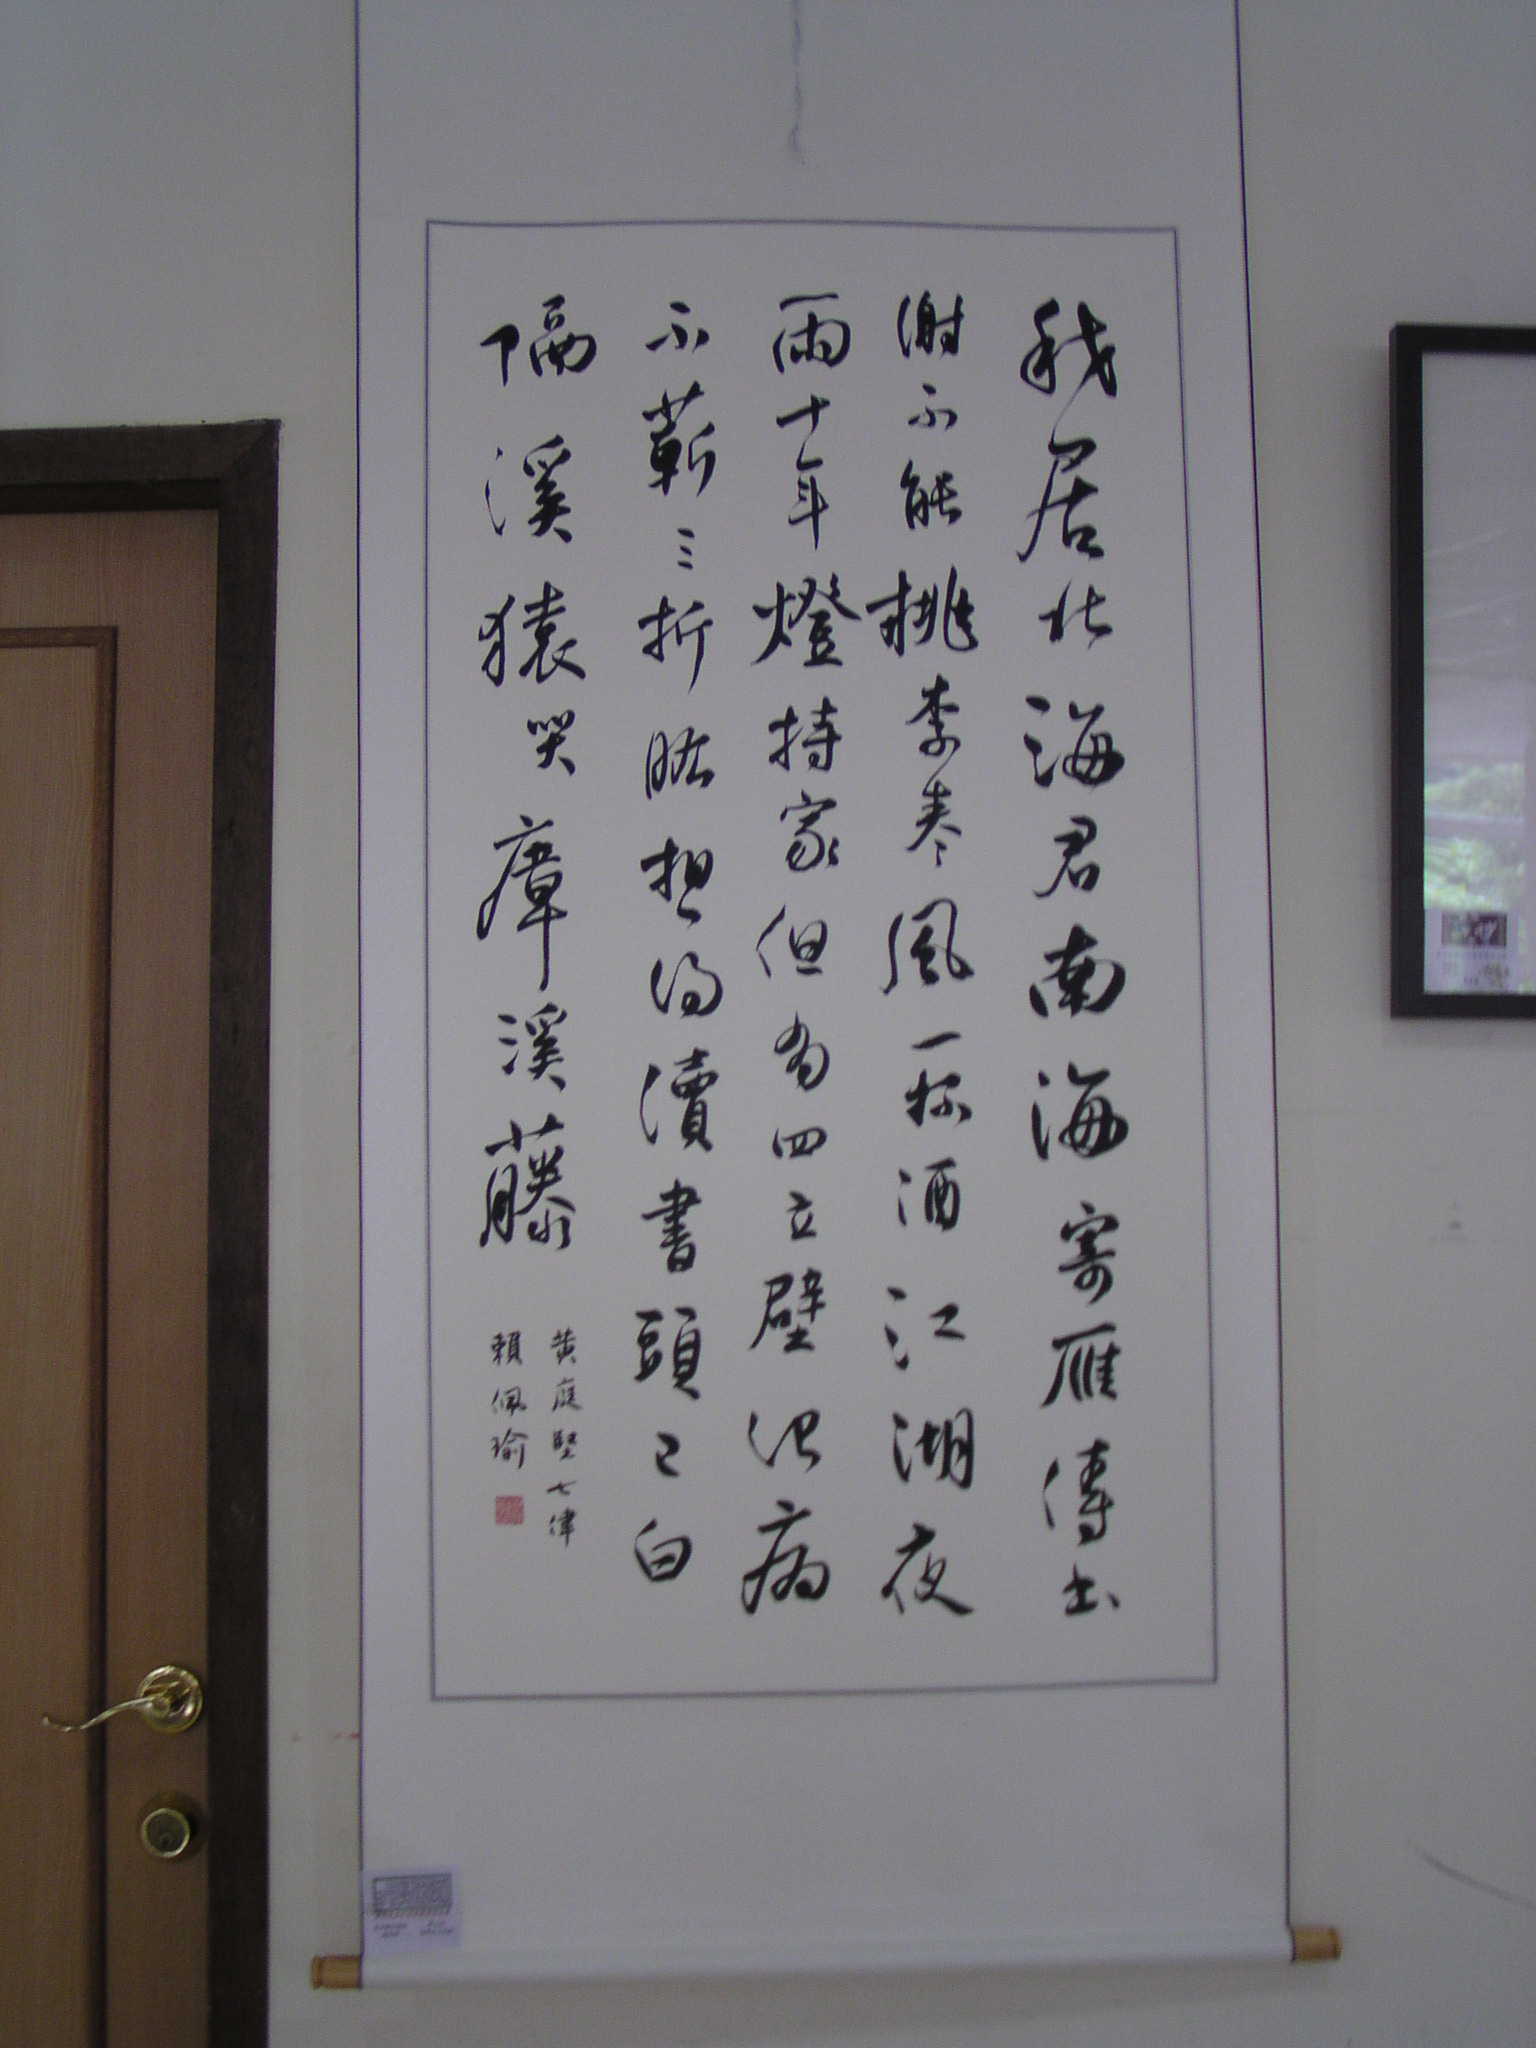 我居北海君南海寄雁傳書
謝不能桃李春風一杯酒江湖夜
雨十年燈持家但有四立壁治病
不蘄三折肱想得讀書頭已白
隔溪猿哭瘴溪藤
黃庭堅七律
賴佩瑜